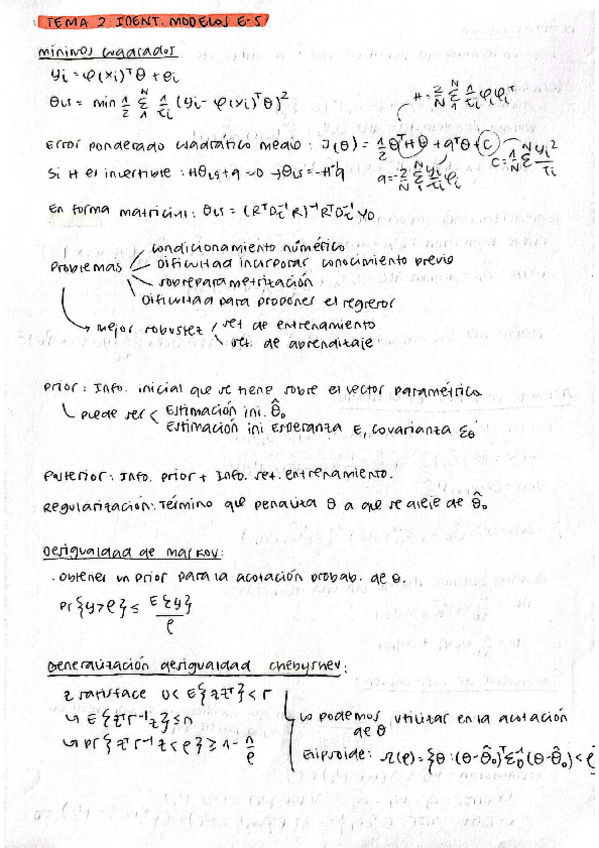 TEMA 2: IDENT. MODELOS E-S
mínimos cuadrados
yi = φ(xi)ᵀθ + ei
θLS = min 1/2 Σ₁ᴺ 1/τi (yi - φ(xi)ᵀθ)²
H = 2/N Σ₁ᴺ 1/τi φi φiᵀ
Error ponderado cuadrático medio: J(θ) = 1/2 θᵀHθ + qᵀθ + C
Si H es invertible: HθLS + q = 0 → θLS = -H⁻¹q
q = -2/N Σ yi/τi φi
C = 1/N Σ₁ᴺ yi²/τi
En forma matricial: θLS = (RᵀDτ⁻¹R)⁻¹RᵀDτ⁻¹yD
Problemas
condicionamiento numérico
Dificultad incorporar conocimiento previo
sobreparametrización
Dificultad para proponer el regresor
→ mejor robustez
set de entrenamiento
set. de aprendizaje
Prior: Info. inicial que se tiene sobre el vector paramétrico
puede ser <
Estimación ini. θ̂₀
estimación ini esperanza E, covarianza Σθ
Posterior: Info. prior + Info. set. entrenamiento.
Regularización: Término que penaliza θ a que se aleje de θ̂₀
Desigualdad de Markov:
· Obtener un prior para la acotación probab. de θ.
Pr{y>ρ} ≤ E{y}/ρ
Generalización desigualdad Chebyshev:
z satisface 0 < E{zzᵀ} < Γ
↳ E{zᵀΓ⁻¹z} ≤ n
↳ Pr{zᵀΓ⁻¹z < ρ} ≥ 1 - n/ρ
Lo podemos utilizar en la acotación
de θ
Elipsoide: Ω(ρ) = {θ : (θ-θ̂₀)ᵀΣ₀⁻¹(θ-θ̂₀) < ρ